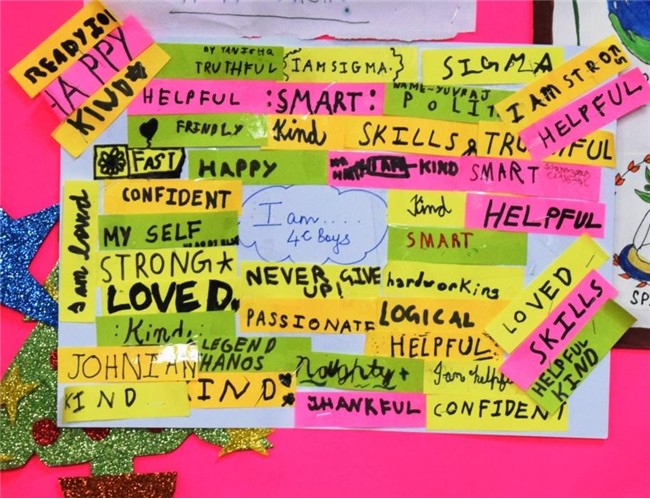 HAPPY
KIND
BY TANISHQ
TRUTHFUL
I AM SIGMA.
SIGMA
HELPFUL
:SMART:
NAME-YUVRAJ
POLIT
I AM STRON
HELPFUL
FRINDLY
Kind
SKILLS
FUL
FAST
HAPPY
I AM KIND
SMART
I am loved
CONFIDENT
I am....
4C Boys
Kind
HELPFUL
MY SELF
SMART
STRONG
LOVED
NEVER GIVE
UP!
hardworking
LOVED
SKILLS
HELPFUL
KIND
PASSIONATE
LOGICAL
:Kind:
LEGEND
HANOS
HELPFUL
JOHNIAN
Naughty
I am helpfu
KIND
KIND
THANKFUL
CONFIDENT
SP